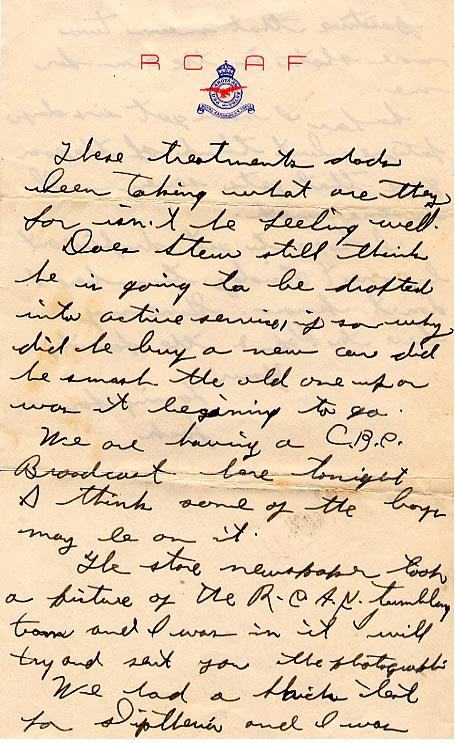 R C A F
These treatments dads
been taking what are they
for isn't he feeling well.
Does Stew still think
he is going to be drafted
into active service, if so why
did he buy a new car did
he smash the old one up or
was it begining to go.
We are having a C.B.C.
Broadcast here tonight
I think some of the boys
may be on it.
The star newspaper took
a picture of the R.C.A.F. tumbling
team and I was in it I will
try and sent you the photograph
We had a Shick test
for diptheria and I was